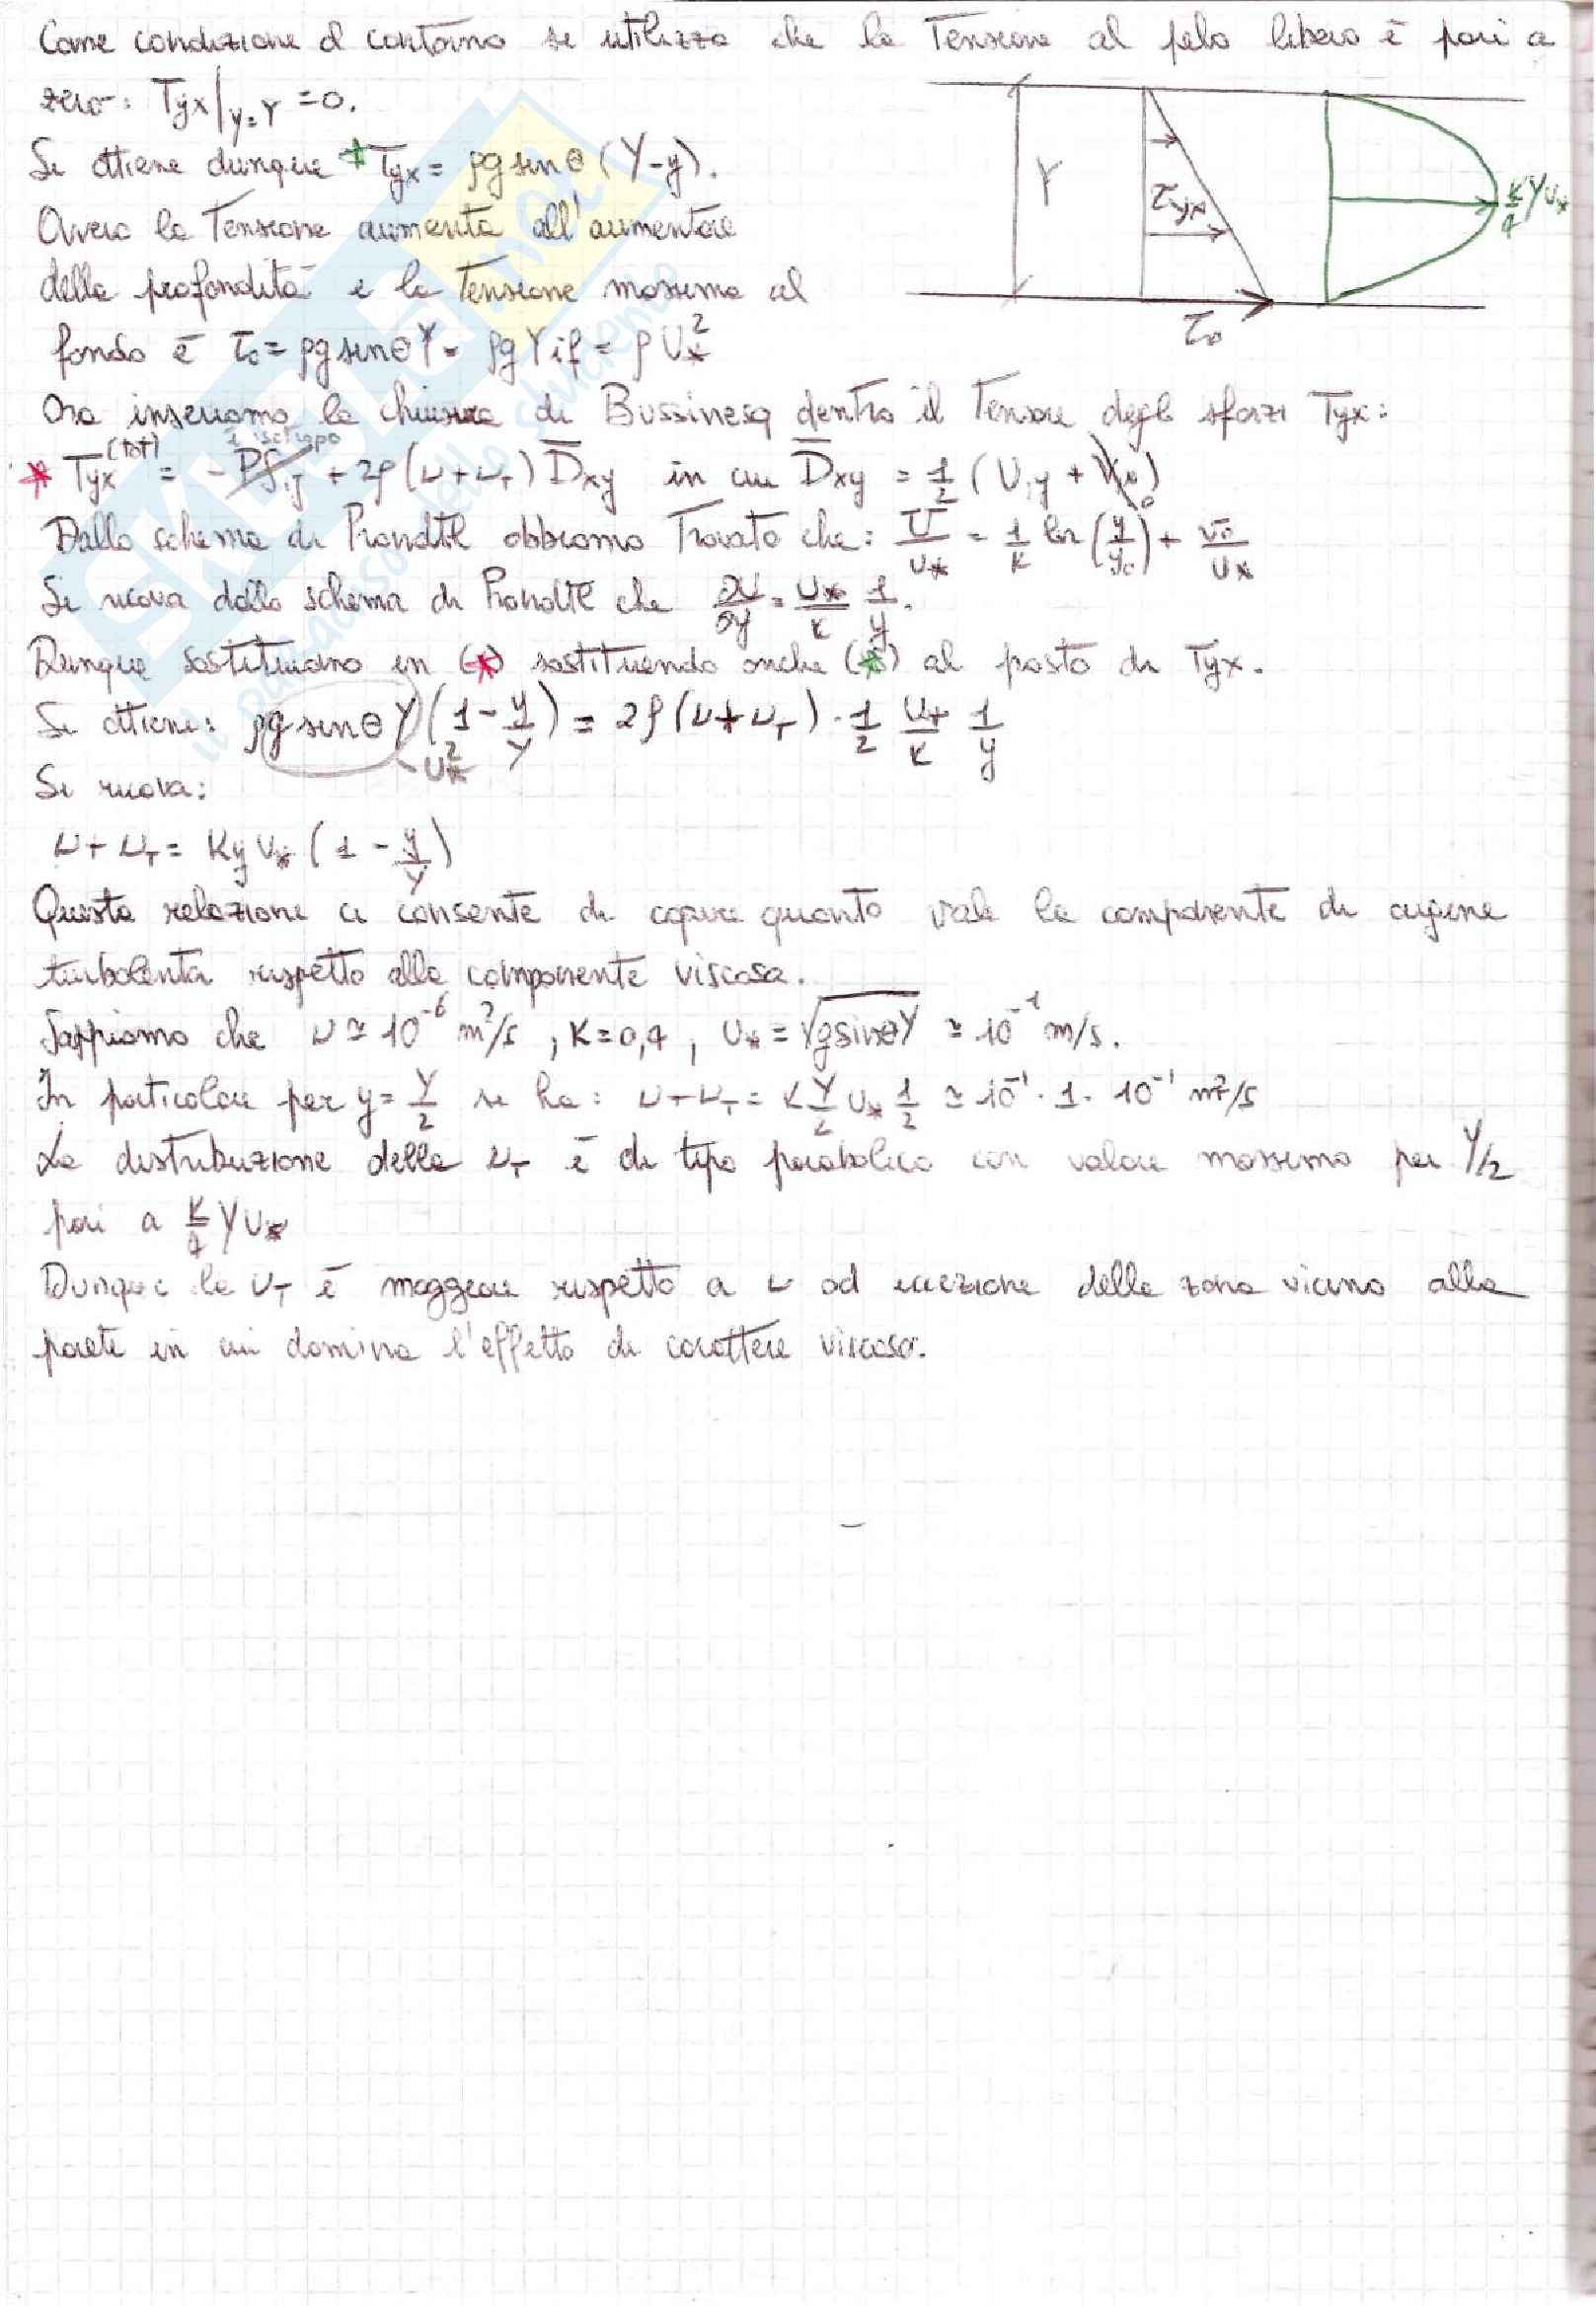 Come condizione al contorno si utilizza che la tensione al pelo libero è pari a
zero: Tyx|y=Y = 0.
Si ottiene dunque * Tyx = ρg sinθ (Y-y).
Ovvero la tensione aumenta all'aumentare
della profondità e la tensione massima al
fondo è τ₀ = ρg sinθ Y = ρg Y if = ρ U*²
Y
τyx
τ₀
K/4 Y U*
Ora inseriamo la chiusura di Bussinesq dentro il tensore degli sforzi Tyx:
* Tyx^(tot) = - Pδij + 2ρ(ν+νT) D̄xy in cui D̄xy = 1/2 (U,y + V,x)
isotropo
0
Dallo schema di Prandtl abbiamo trovato che: Ū/U* = 1/K ln(y/y₀) + v₀/U*
Si ricava dallo schema di Prandtl che ∂U/∂y = U*/K 1/y.
Dunque sostituiamo in (*) sostituendo anche (*) al posto di Tyx.
Si ottiene: ρg sinθ Y (1 - y/Y) = 2ρ(ν+νT) · 1/2 U*/K 1/y
U*²
Si ricava:
ν+νT = Ky U* (1 - y/Y)
Questa relazione ci consente di capire quanto vale la componente di origine
turbolenta rispetto alla componente viscosa.
Sappiamo che ν ≃ 10⁻⁶ m²/s, K=0,4, U* = √(g sinθ Y) ≃ 10⁻¹ m/s.
In particolare per y = Y/2 si ha: ν+νT = K Y/2 U* 1/2 ≃ 10⁻¹ · 1 · 10⁻¹ m²/s
La distribuzione della νT è di tipo parabolico con valore massimo per Y/2
pari a K/4 Y U*
Dunque la νT è maggiore rispetto a ν ad eccezione della zona vicino alla
parete in cui domina l'effetto di carattere viscoso.